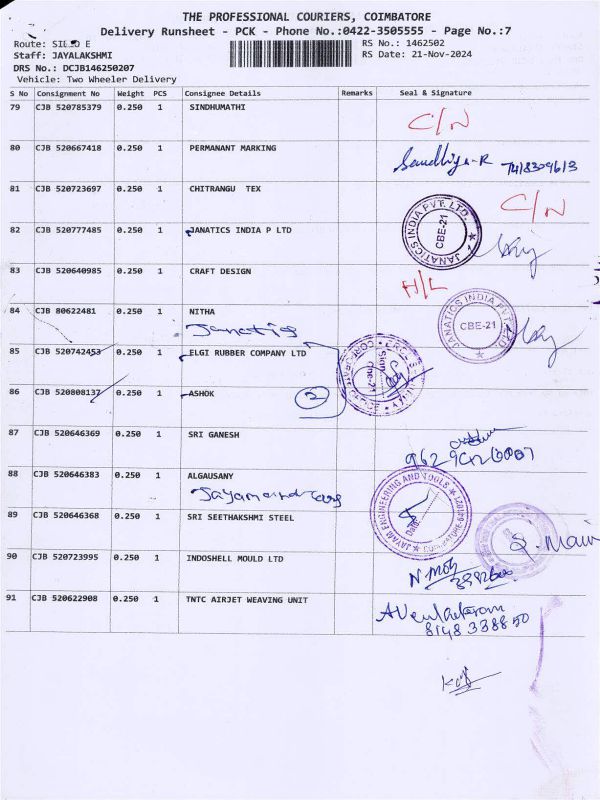 THE PROFESSIONAL COURIERS, COIMBATORE
Delivery Runsheet - PCK - Phone No.:0422-3505555 - Page No.:7
Route: E
RS No.: 1462502
Staff: JAYALAKSHMI
RS Date: 21-Nov-2024
DRS No.: DCJB146250207
Vehicle: Two Wheeler Delivery
S No Consignment No Weight PCS Consignee Details Remarks Seal & Signature
79 CJB 520785379 0.250 1 SINDHUMATHI
C/N
80 CJB 520667418 0.250 1 PERMANANT MARKING
Sandhiya-R 7418309613
81 CJB 520723697 0.250 1 CHITRANGU TEX
C/N
82 CJB 520777485 0.250 1 JANATICS INDIA P LTD
JANATICS INDIA PVT. LTD. CBE-21
83 CJB 520640985 0.250 1 CRAFT DESIGN
H/L
84 CJB 80622481 0.250 1 NITHA
Janatics
JANATICS INDIA PVT. LTD CBE-21
85 CJB 520742453 0.250 1 ELGI RUBBER COMPANY LTD
86 CJB 520808137 0.250 1 ASHOK
2
87 CJB 520646369 0.250 1 SRI GANESH
88 CJB 520646383 0.250 1 ALGAUSANY
JAYAM ENGINEERING AND TOOLS
Date:
89 CJB 520646368 0.250 1 SRI SEETHAKSHMI STEEL
90 CJB 520723995 0.250 1 INDOSHELL MOULD LTD
91 CJB 520622908 0.250 1 TNTC AIRJET WEAVING UNIT
8148 338850